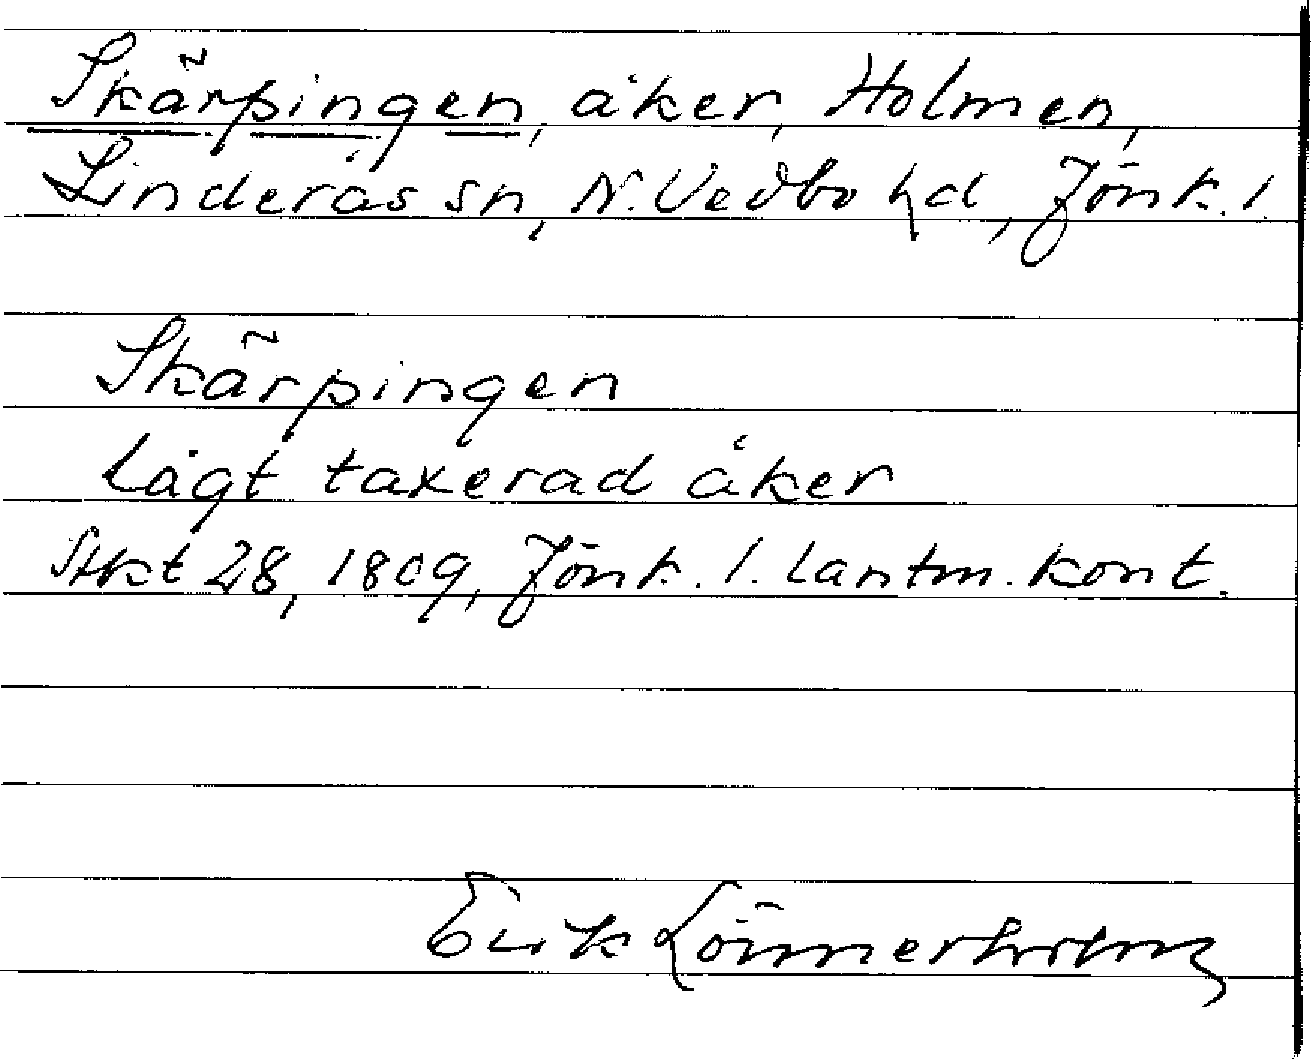 Skärpingen, åker, Holmen,
Linderås sn, N. Vedbo hd, Jönk. l.
Skärpingen
Lågt taxerad åker
Stkt 28, 1809, Jönk. l. lantm. kont.
Erik Lönnerholm